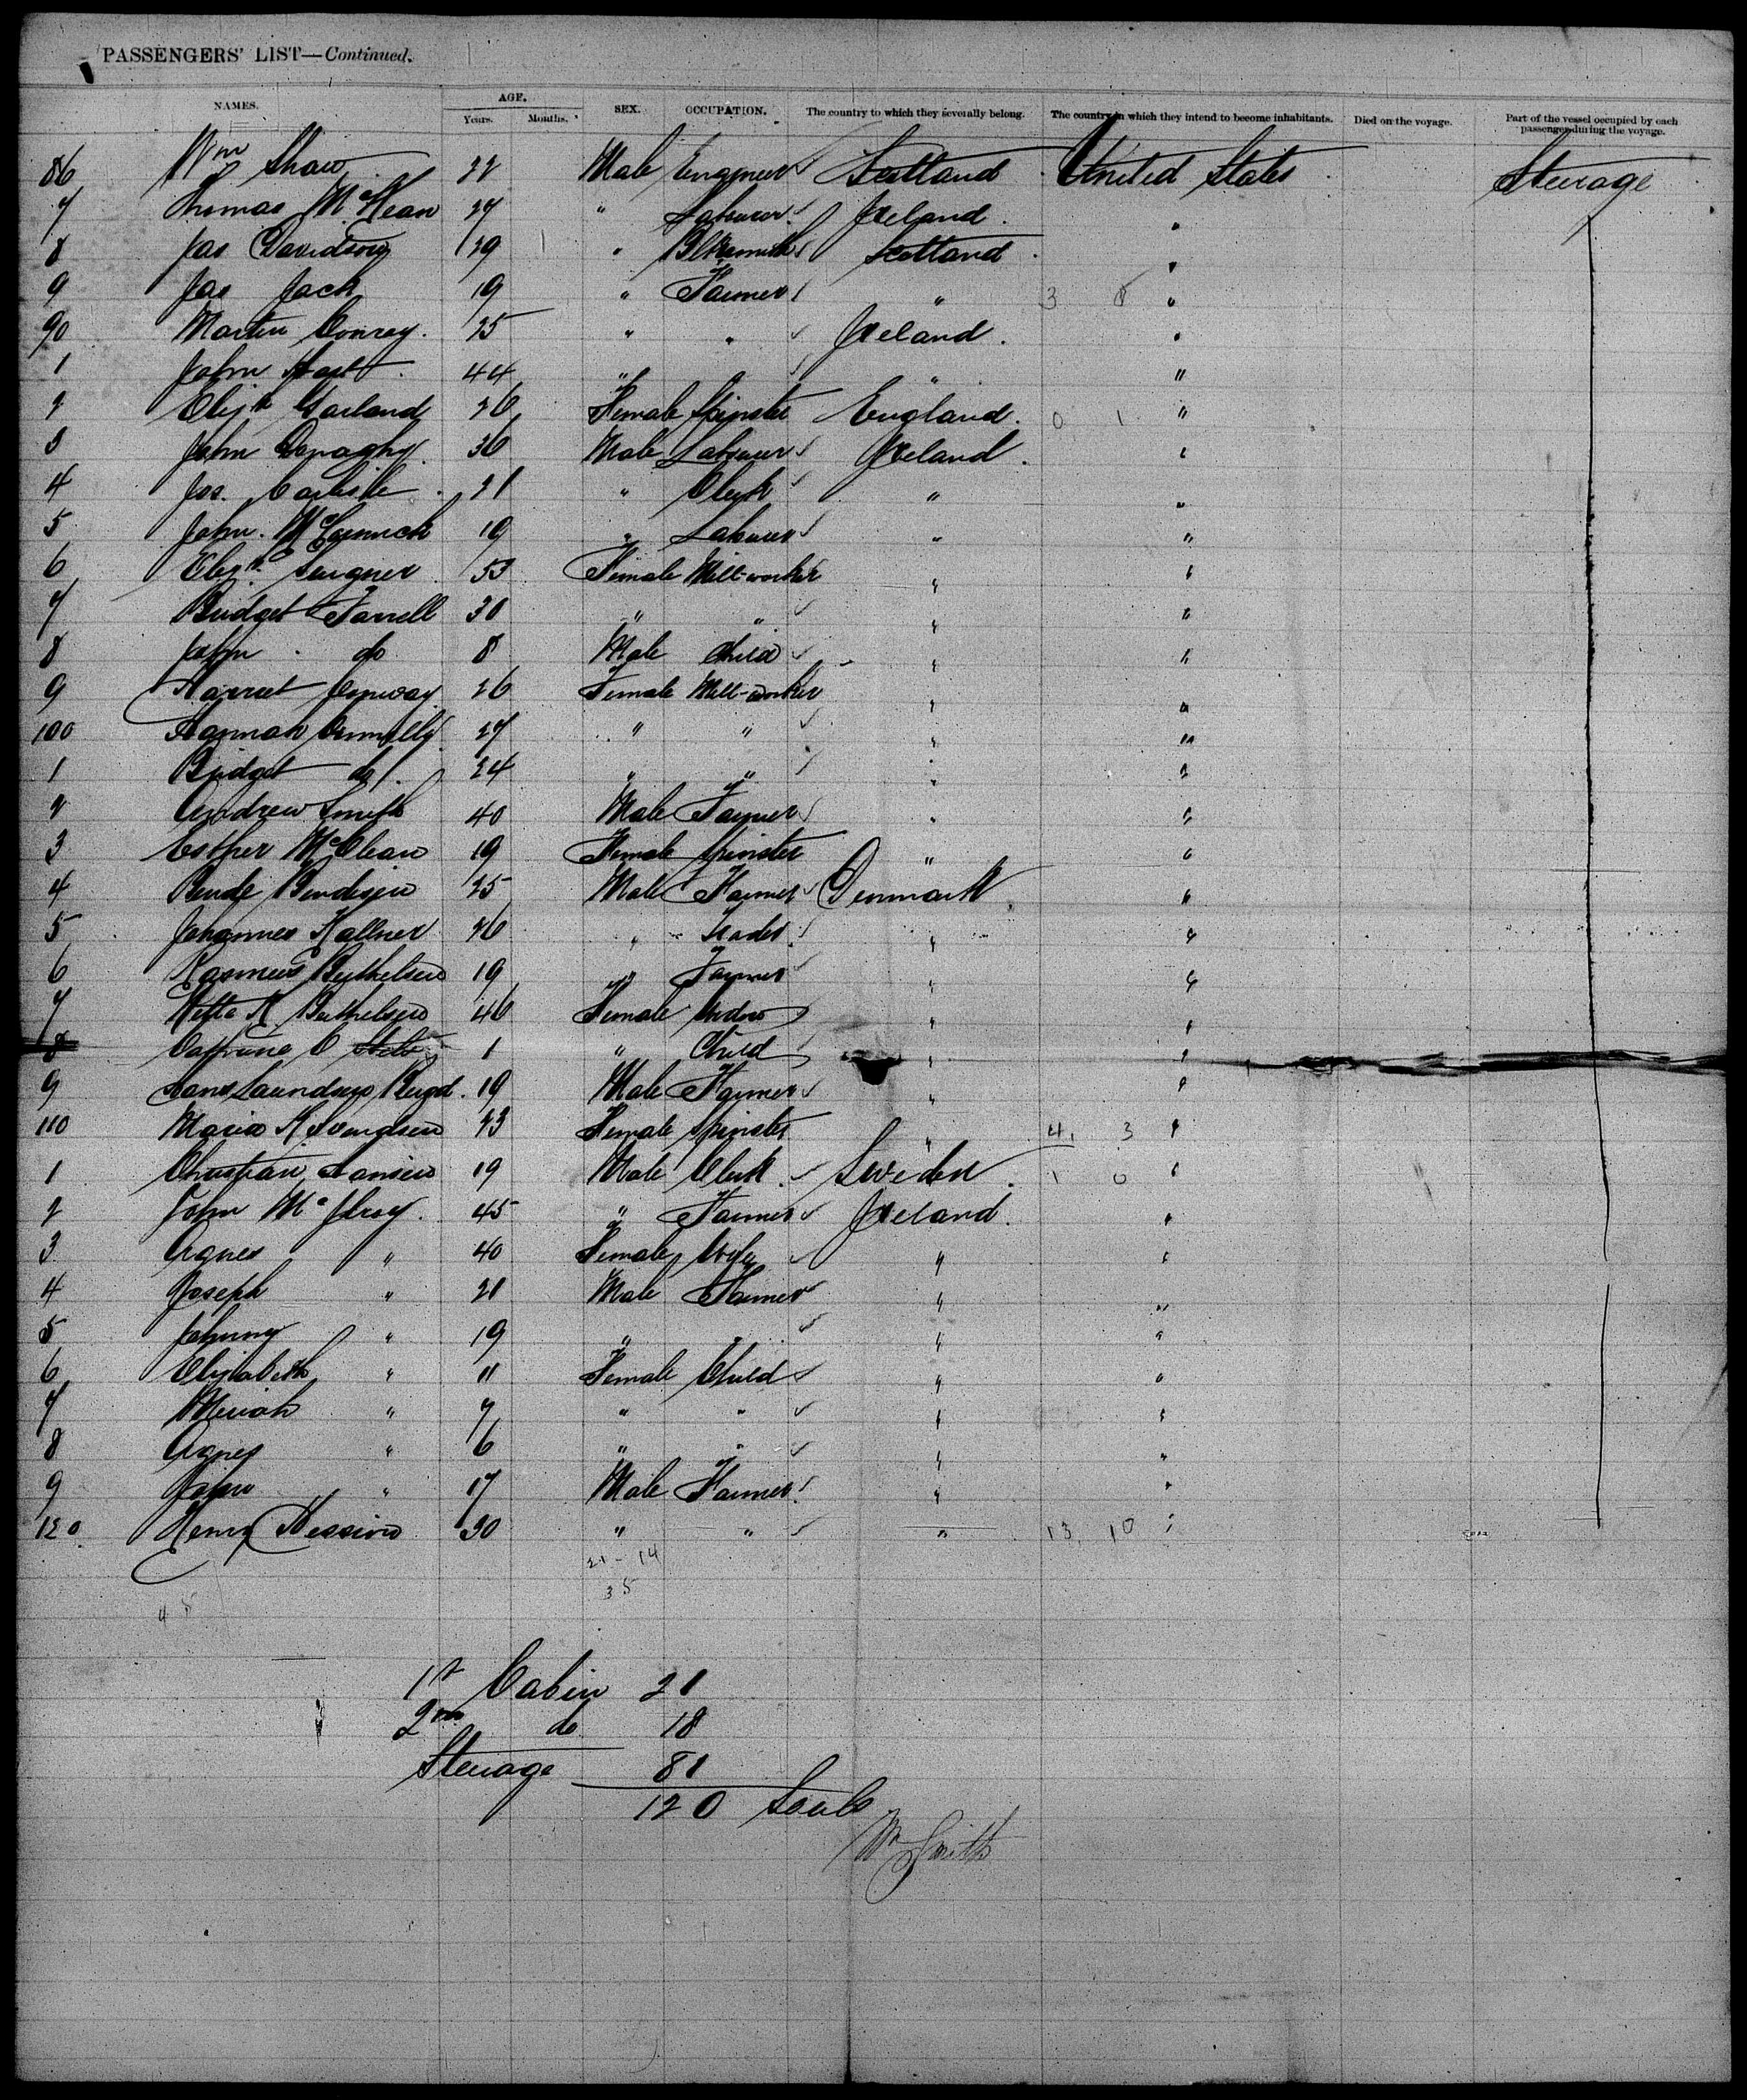 PASSENGERS' LIST—Continued.
NAMES. AGE. Years. Months. SEX. OCCUPATION. The country to which they severally belong. The country in which they intend to become inhabitants. Died on the voyage. Part of the vessel occupied by each passenger during the voyage.
86 Wm Shaw 22 Male Engineer Scotland United States Steerage
7 Thomas McKean 27 " Labourer Ireland "
8 Jas Davidson 29 " Blksmith Scotland "
9 Jas Jack 19 " Farmer " 3 0 "
90 Martin Conroy. 25 " " Ireland. "
1 John Hart. 44 " " "
2 Elizth Garland 26 Female Spinster England. 0 1 "
3 John Donaghy. 36 Male Labourer Ireland. "
4 Jos. Carlisle. 21 " Clerk " "
5 John. McCormick 19 " Labourer " "
6 Elizth 53 Female Mill-worker " "
7 Bridget Farrell 30 " " " "
8 John do 8 Male Child " "
9 Harriet Conway 26 Female Mill-worker " "
100 Hannah Connolly 27 " " " "
1 Bridget do. 24 " " " "
2 Andrew Smith 40 Male Farmer " "
3 Esther McClean 19 Female Spinster " "
4 Bende Bendsen 25 Male Farmer Denmark "
5 Johannes Kallner 26 " Trader " "
6 Rasmus Berthelsen 19 " Farmer " "
7 Mette K Berthelsen 46 Female Widow " "
8 Cathrine C 1 " Child " "
9 Hans Laundsen 19 Male Farmer " "
110 Maria K Svendsen 23 Female Spinster " 4 3 "
1 Christian Hansen 19 Male Clerk Sweden. 1 0 "
2 John McIlroy. 45 " Farmer Ireland. "
3 Agnes " 40 Female Wife " "
4 Joseph " 21 Male Farmer " "
5 Johnny " 19 " " " "
6 Elizabeth " 11 Female Child " "
7 Meriah " 7 " " " "
8 Agnes " 6 " " " "
9 John " 17 Male Farmer " "
120. Henry Hession 30 " " " 13 10 "
21 - 14
35
1st Cabin 21
2nd do 18
Steerage 81
120 Souls
Wm Smith